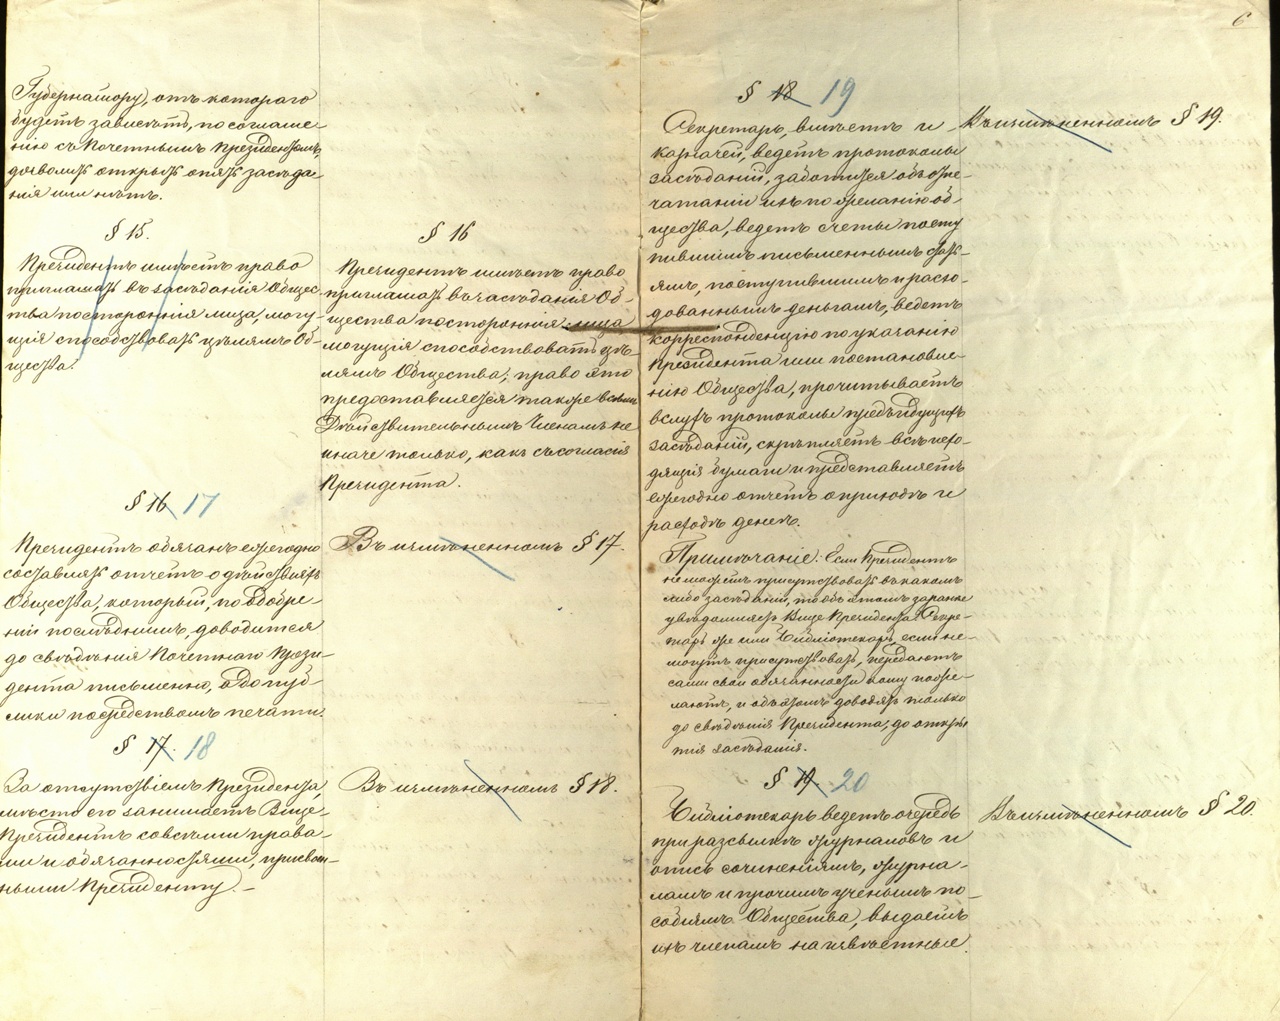 6
Губернатору), отъ котораго
будетъ зависѣть, по соглаше-
нію съ Почетнымъ Президентомъ,
дозволить открыть опять засѣда-
нія или нѣтъ.
§ 15.
Президентъ имѣетъ право
приглашать въ засѣданія Общес-
тва постороннія лица, могу-
щія способствовать цѣлямъ Об-
щества.
§ 16 17
Президентъ обязанъ ежегодно
составлять отчетъ о дѣйствіяхъ
Общества, который, по одобре-
ніи послѣднимъ, доводится
до свѣдѣнія Почетнаго Прези-
дента письменно, а до пуб-
лики посредствомъ печати.
§ 17. 18
За отсутствіемъ Президента,
мѣсто его занимаетъ Вице-
Президентъ со всѣми права-
ми и обязанностями, присвоен-
ными Президенту.
§ 16
Президентъ имѣетъ право
приглашать въ засѣданія Об-
щества постороннія лица
могущія способствовать цѣ-
лямъ Общества; право это
предоставляется также всѣмъ
Дѣйствительнымъ Членамъ не
иначе только, какъ съ согласія
Президента.
Въ измѣненномъ § 17.
Въ измѣненномъ § 18.
§ 18 19
Секретарь, вмѣстѣ и
казначей, ведетъ протоколы
засѣданій, заботится объ отпе-
чатаніи ихъ по желанію об-
щества, ведетъ счеты посту
пившимъ письменнымъ стать-
ямъ, поступившимъ и расхо-
дованнымъ деньгамъ, ведетъ
корреспонденцію по указанію
Президента или постановле-
нію Общества, прочитываетъ
вслухъ протоколы предъидущихъ
засѣданій, скрѣпляетъ всѣ исхо-
дящія бумаги и представляетъ
ежегодно отчетъ о приходѣ и
расходѣ денегъ.
Примѣчаніе: Если Президентъ
не можетъ присутствовать въ какомъ
либо засѣданіи, то объ этомъ заранѣе
увѣдомляетъ Вице Президента. Секре-
тарь же или Библіотекарь, если не
могутъ присутствовать, передаютъ
сами свои обязанности кому поже-
лаютъ, и объ этомъ доводятъ только
до свѣдѣнія Президента, до откры
тія засѣданія.
§ 19 20
Библіотекарь ведетъ очередь
при разсылкѣ журналовъ и
опись сочиненіямъ, журна-
ламъ и прочимъ ученымъ по-
собіямъ Общества, выдаетъ
ихъ членамъ на извѣстные
Въ измѣненномъ § 19.
Въ измѣненномъ § 20.